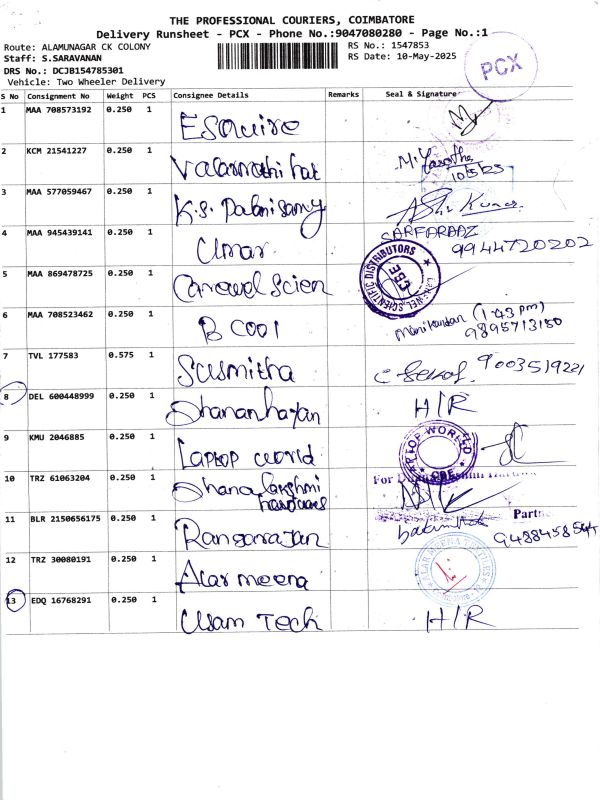 THE PROFESSIONAL COURIERS, COIMBATORE
Delivery Runsheet - PCX - Phone No.:9047080280 - Page No.:1
Route: ALAMUNAGAR CK COLONY
RS No.: 1547853
Staff: S.SARAVANAN
RS Date: 10-May-2025
DRS No.: DCJB154785301
Vehicle: Two Wheeler Delivery
PCX
S No Consignment No Weight PCS Consignee Details Remarks Seal & Signature
1 MAA 708573192 0.250 1 Esquire
2 KCM 21541227 0.250 1 Valarmathi hat
10/5/25
3 MAA 577059467 0.250 1 K.S. Palanisamy
4 MAA 945439141 0.250 1 Umar SARFARAAZ
9944720202
5 MAA 869478725 0.250 1 Carewel Scien
SCIENTIFIC DISTRIBUTORS
CBE
6 MAA 708523462 0.250 1 B COOl Manikandan (1:43 pm)
9895713150
7 TVL 177583 0.575 1 Susmitha 9003519221
8 DEL 600448999 0.250 1 H/R
9 KMU 2046885 0.250 1 Laptop world LAPTOP WORLD
CBE
10 TRZ 61063204 0.250 1 Dhana lakshmi
hardwares
For
Partner
11 BLR 2150656175 0.250 1 Rangarajan
12 TRZ 30080191 0.250 1 Alar meena ALAR MEENA TEXTILES
13 EDQ 16768291 0.250 1 Usam Tech H/R